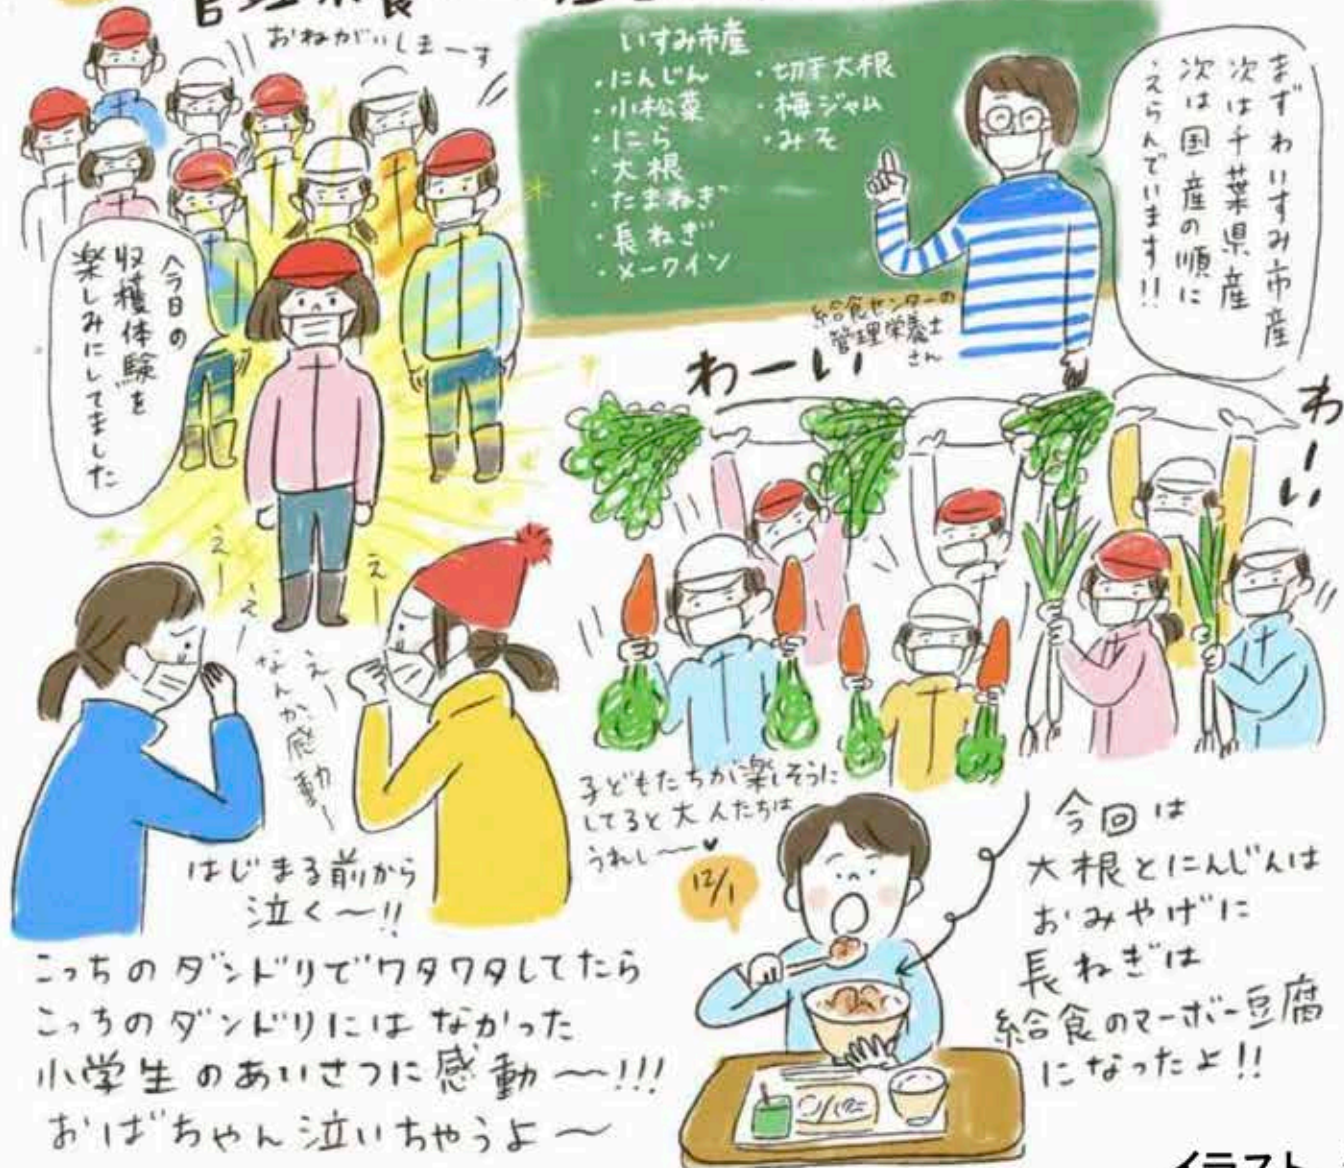 おねがいしまーす
いすみ市産
・にんじん
・小松菜
・にら
・大根
・たまねぎ
・長ねぎ
・メークイン
・切干大根
・梅ジャム
・みそ
まずわいすみ市産
次は千葉県産
次は国産の順に
えらんでいます!!
給食センターの
管理栄養士
さん
今日の
収穫体験を
楽しみにしてました
わーい
わーい
えー
えー
え
えー
なんか感動〜
はじまる前から
泣く〜!!
子どもたちが楽しそうに
してると大人たちは
うれし〜〜♥
12/1
今回は
大根とにんじんは
おみやげに
長ねぎは
給食のマーボー豆腐
になったよ!!
こっちのダンドリでワタワタしてたら
こっちのダンドリにはなかった
小学生のあいさつに感動〜!!!
おばちゃん泣いちゃうよ〜